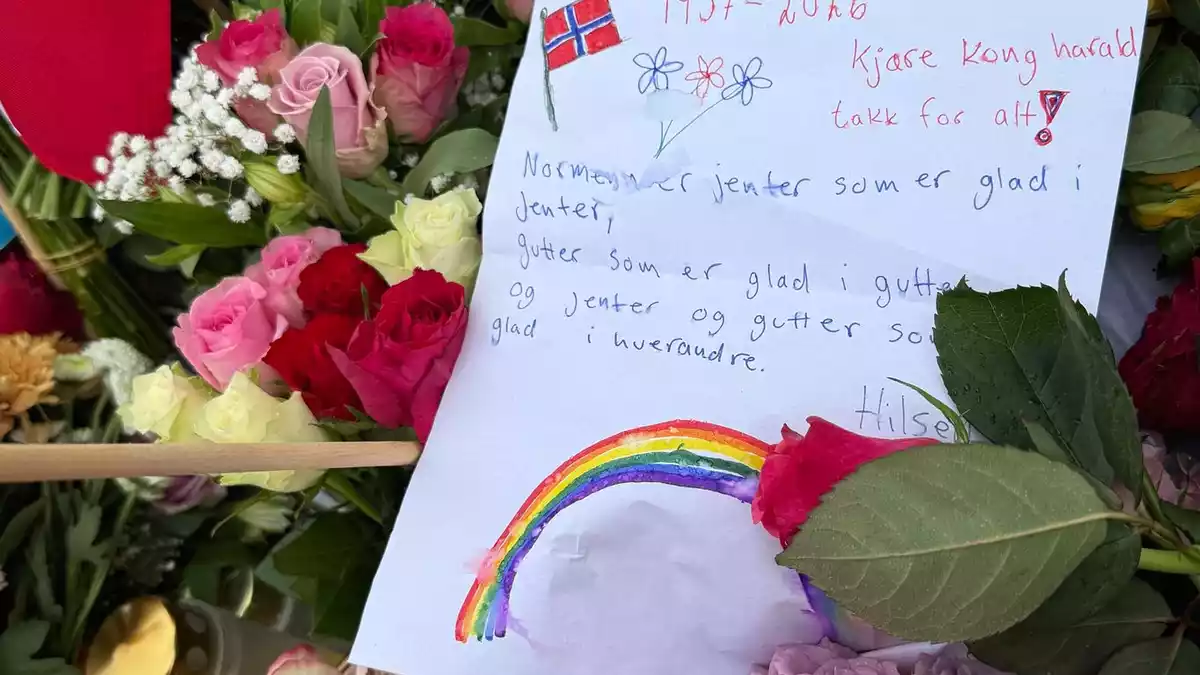 1937-2026
Kjære Kong harald
takk for alt!
Normenn er jenter som er glad i
Jenter,
gutter som er glad i gutte
og jenter og gutter so
glad i hverandre.
Hilse